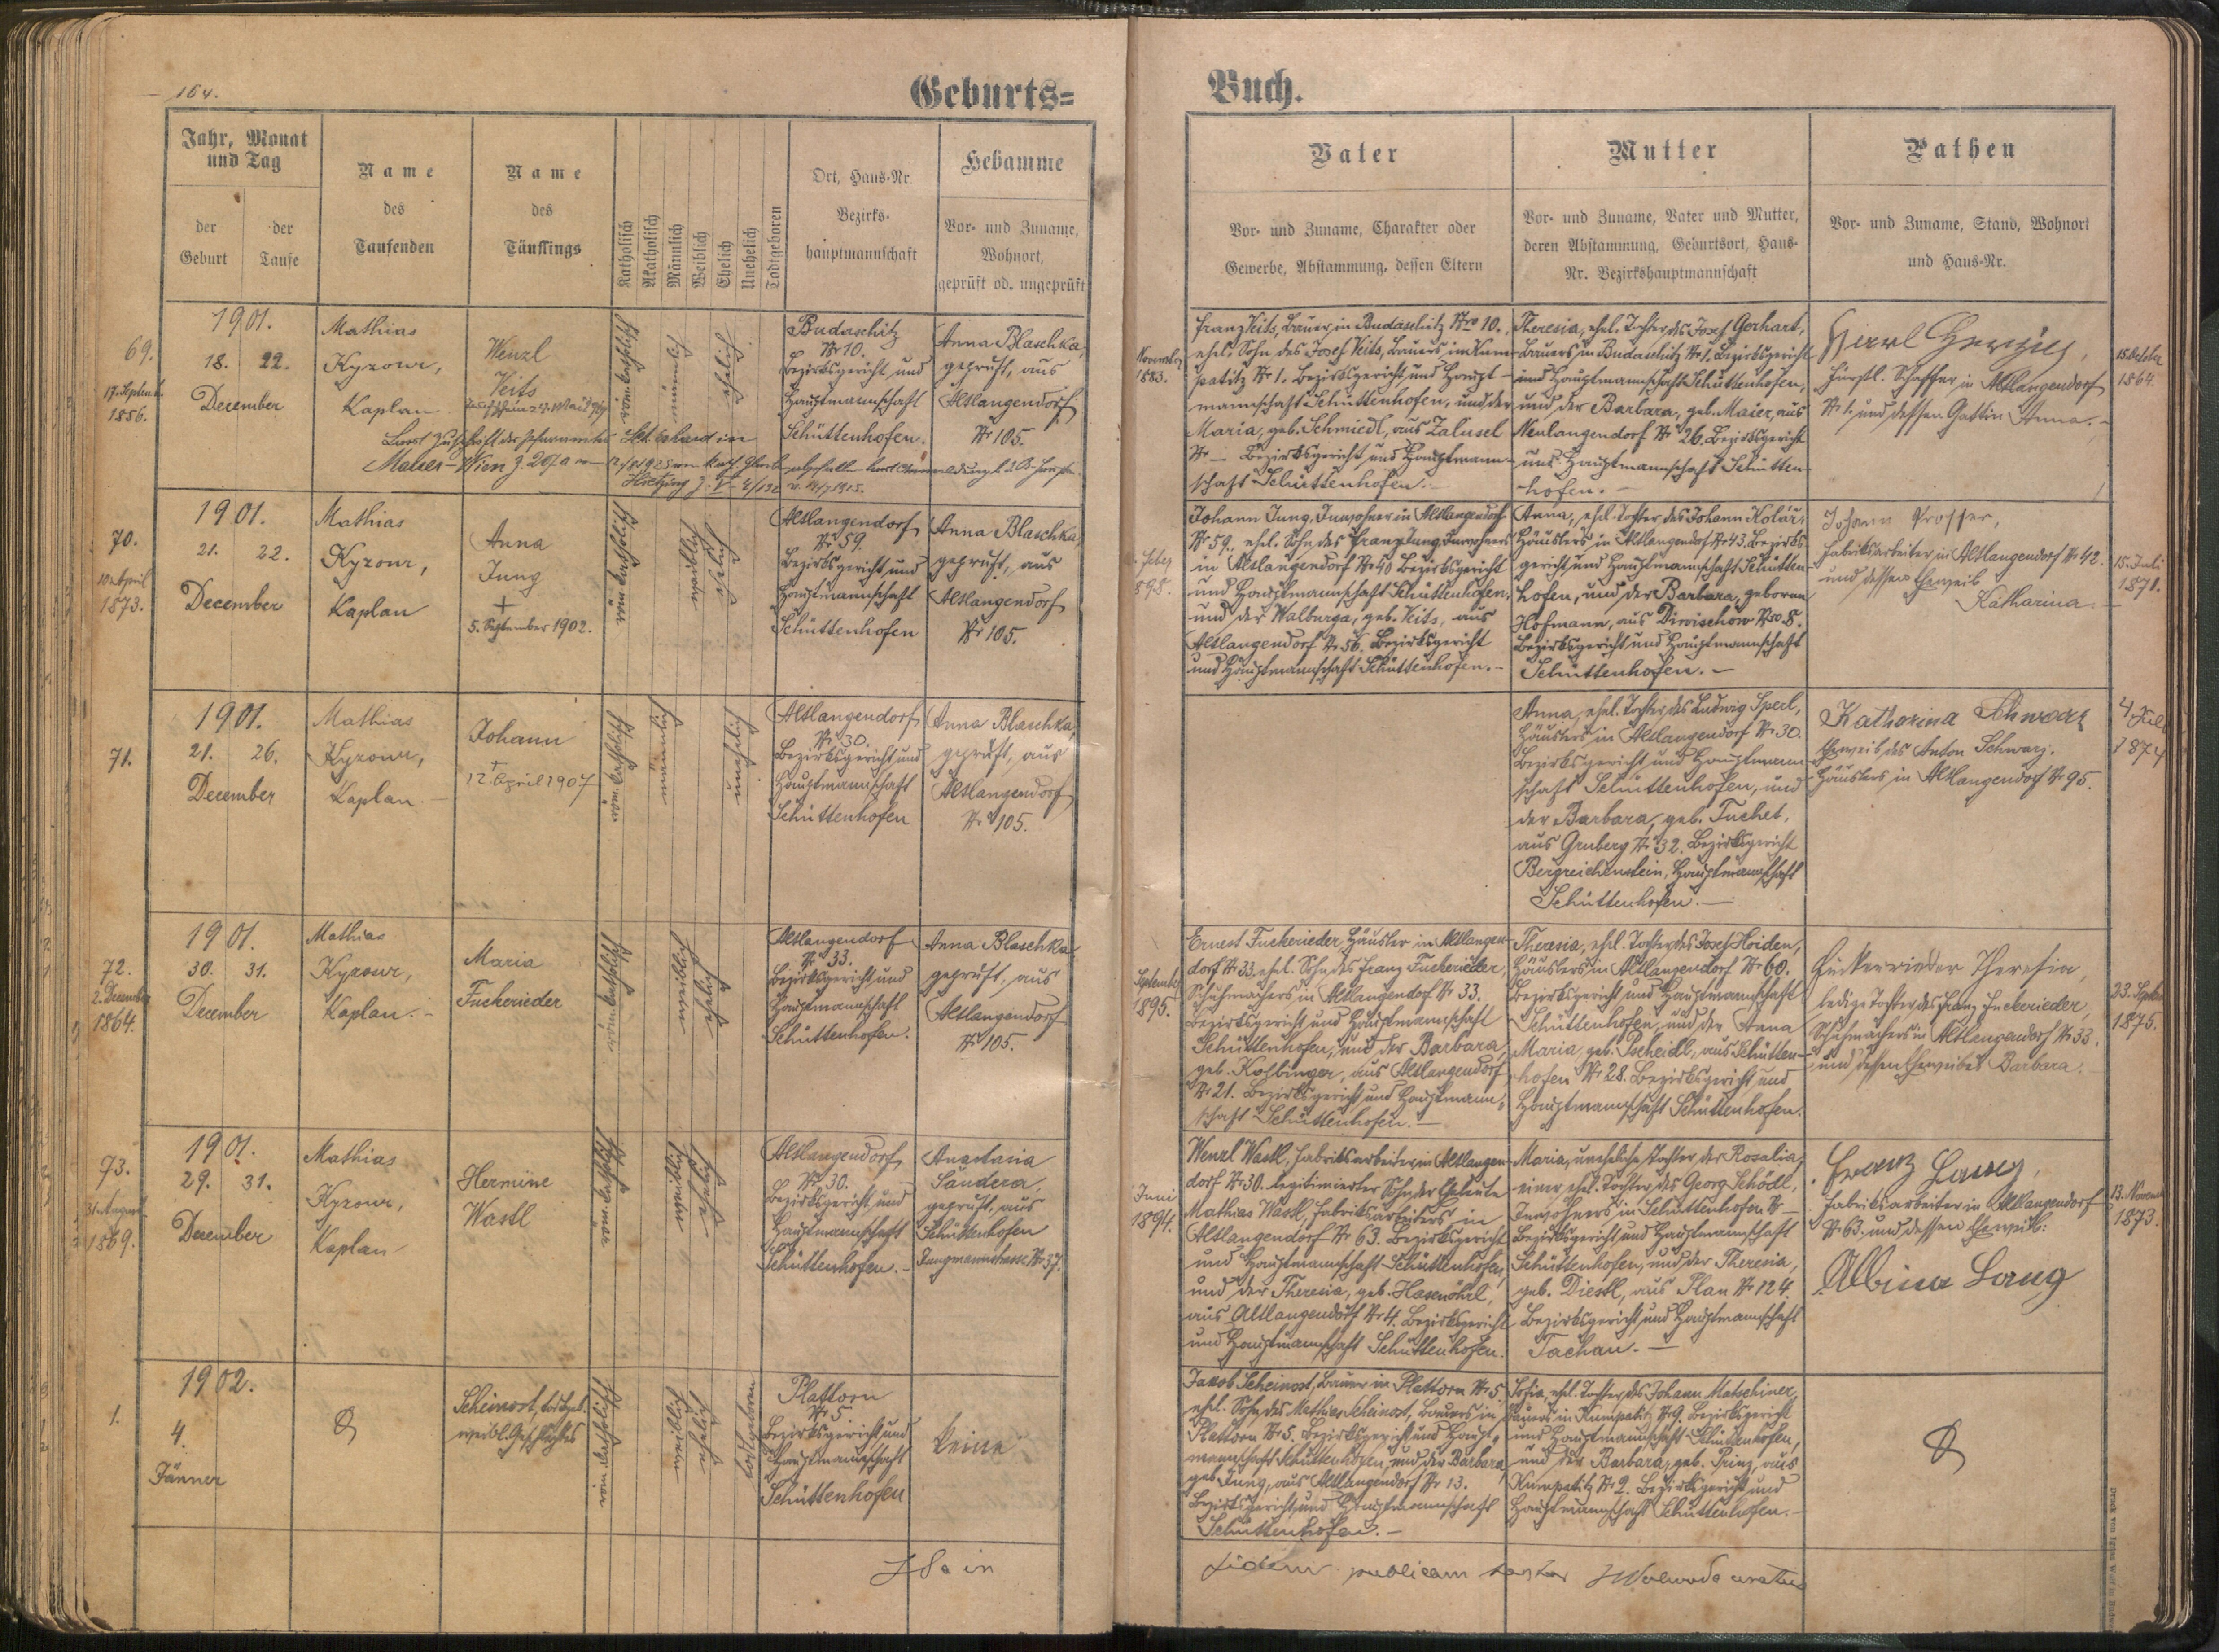 164.
Geburts=
Jahr, Monat
und Tag
der
Geburt
der
Taufe
Name
des
Taufenden
Name
des
Täuflings
Katholisch
Akatholisch
Männlich
Weiblich
Ehelich
Unehelich
Todtgeboren
Ort, Haus-Nr.
Bezirks-
hauptmannschaft
Hebamme
Vor- und Zuname,
Wohnort,
geprüft od. ungeprüft
69.
17. Septemb.
1856.
1901.
18. 22.
December
Mathias
Kyzour,
Kaplan
Wenzl
Veits
röm. katholisch
männlich
ehelich
Budaschitz
Nr 10.
Bezirksgericht und
Hauptmannschaft
Schüttenhofen.
Anna Blaschka,
geprüft, aus
Altlangendorf
Nr 105.
70.
10. April
1873.
1901.
21. 22.
December
Mathias
Kyzour,
Kaplan
Anna
Jung
+
5. September 1902.
röm. katholisch
weiblich
ehelich
Altlangendorf
Nr 59.
Bezirksgericht und
Hauptmannschaft
Schüttenhofen
Anna Blaschka,
geprüft, aus
Altlangendorf
Nr 105.
71.
1901.
21. 26.
December
Mathias
Kyzour,
Kaplan.
Johann
+
12 April 1907
röm. katholisch
männlich
unehelich
Altlangendorf
Nr 30.
Bezirksgericht und
Hauptmannschaft
Schüttenhofen
Anna Blaschka,
geprüft, aus
Altlangendorf
Nr 105.
72.
2. December
1864.
1901.
30. 31.
December
Mathias
Kyzour,
Kaplan.
Maria
Fuckerieder
röm. katholisch
weiblich
ehelich
Altlangendorf
Nr 33.
Bezirksgericht und
Hauptmannschaft
Schüttenhofen.
Anna Blaschka,
geprüft, aus
Altlangendorf
Nr 105.
73.
31. August
1869.
1901.
29. 31.
December
Mathias
Kyzour,
Kaplan
Hermine
Wastl
röm. katholisch
weiblich
ehelich
Altlangendorf
Nr 30.
Bezirksgericht und
Hauptmannschaft
Schüttenhofen.
Anastasia
Sandera,
geprüft, aus
Schüttenhofen
Jungmannstrasse Nr 37.
1.
1902.
4.
Jänner
Scheinost, todtgeb.
weibl. Geschlechtes
röm. katholisch
weiblich
ehelich
todtgeboren
Plattorn
Nr 5.
Bezirksgericht und
Hauptmannschaft
Schüttenhofen
keine
Buch.
Vater
Vor- und Zuname, Charakter oder
Gewerbe, Abstammung, dessen Eltern
Mutter
Vor- und Zuname, Vater und Mutter,
deren Abstammung, Geburtsort, Haus-
Nr. Bezirkshauptmannschaft
Pathen
Vor- und Zuname, Stand, Wohnort
und Haus-Nr.
1883.
Franz Veits, Bauer in Budaschitz Nro 10.
ehel. Sohn des Josef Veits, Bauers in Kum-
patitz Nr 1. Bezirksgericht und Haupt-
mannschaft Schüttenhofen, und der
Maria, geb. Schmiedl, aus Zaluzel
Nr — Bezirksgericht und Hauptmann-
schaft Schüttenhofen.
Theresia, ehel. Tochter des Josef Gerhart,
Bauers in Budaschitz Nr 1. Bezirksgericht
und Hauptmannschaft Schüttenhofen,
und der Barbara, geb. Maier, aus
Neulangendorf Nr 26. Bezirksgericht
und Hauptmannschaft Schütten-
hofen.
fürstl. Schaffer in Altlangendorf
Nr 1. und dessen Gattin Anna.
15. October
1864.
Johann Jung, Inwohner in Altlangendorf
Nr 59. ehel. Sohn des Franz Jung, Inwohners
in Altlangendorf Nr 40 Bezirksgericht
und Hauptmannschaft Schüttenhofen,
und der Walburga, geb. Veits, aus
Altlangendorf Nr 56. Bezirksgericht
und Hauptmannschaft Schüttenhofen.
Anna, ehel. Tochter des Johann Kolář,
Häuslers in Altlangendorf Nr 43. Bezirks-
gericht und Hauptmannschaft Schütten-
hofen, und der Barbara, geborne
Hofmann, aus Diwischow Nro 8.
Bezirksgericht und Hauptmannschaft
Schüttenhofen.
Johann Prosser,
Fabriksarbeiter in Altlangendorf Nr 42.
und dessen Eheweib
Katharina.
15. Juli
1871.
Anna, ehel. Tochter des Ludwig Sperl,
Häuslers in Altlangendorf Nr 30.
Bezirksgericht und Hauptmann-
schaft Schüttenhofen, und
der Barbara, geb. Tuchet,
aus Gruberg Nr 32. Bezirksgericht
Bergreichenstein, Hauptmannschaft
Schüttenhofen.
Katharina Schwarz
Eheweib des Anton Schwarz,
Häuslers in Altlangendorf Nr 95.
4. Juli
1874
September
1895.
Ernest Fuckerieder, Häusler in Altlangen-
dorf Nr 33. ehel. Sohn des Franz Fuckerieder,
Schuhmachers in Altlangendorf Nr 33.
Bezirksgericht und Hauptmannschaft
Schüttenhofen, und der Barbara,
geb. Kolbinger, aus Altlangendorf
Nr 21. Bezirksgericht und Hauptmann-
schaft Schüttenhofen.
Theresia, ehel. Tochter des Josef Hoiden,
Häuslers in Altlangendorf Nr 60.
Bezirksgericht und Hauptmannschaft
Schüttenhofen, und der Anna
Maria, geb. Pscheidl, aus Schütten-
hofen Nr 28. Bezirksgericht und
Hauptmannschaft Schüttenhofen.
Fuckerrieder Theresia,
ledige Tochter des Franz Fuckerieder,
Schuhmachers in Altlangendorf Nr 33.
und dessen Eheweibes Barbara.
23. Septem
1875.
Juni
1894.
Wenzl Wastl, Fabriksarbeiter in Altlangen-
dorf Nr 30. legitimierter Sohn der Eheleute
Mathias Wastl, Fabriksarbeiters in
Altlangendorf Nr 63. Bezirksgericht
und Hauptmannschaft Schüttenhofen,
und der Theresia, geb. Hasenöhrl,
aus Altlangendorf Nr 4. Bezirksgericht
und Hauptmannschaft Schüttenhofen.
Maria, uneheliche Tochter der Rosalia,
einer ehel. Tochter des Georg Schödl,
Inwohners in Schüttenhofen Nr —
Bezirksgericht und Hauptmannschaft
Schüttenhofen, und der Theresia,
geb. Diestl, aus Plan Nr 124.
Bezirksgericht und Hauptmannschaft
Tachau.
Franz Lang,
Fabriksarbeiter in Altlangendorf
Nr 63. und dessen Eheweib:
Albina Lang
13. Novem
1873.
Jakob Scheinost, Bauer in Plattorn Nr 5
ehel. Sohn des Mathias Scheinost, Bauers in
Plattorn Nr 5. Bezirksgericht und Haupt-
mannschaft Schüttenhofen, und der Barbara,
geb. Jung, aus Altlangendorf Nr 13.
Bezirksgericht und Hauptmannschaft
Schüttenhofen.
Sofia, ehel. Tochter des Johann Matschiner,
Bauers in Kumpatitz Nr 9. Bezirksgericht
und Hauptmannschaft Schüttenhofen,
und der Barbara, geb. Prinz, aus
Kumpatitz Nr 2. Bezirksgericht und
Hauptmannschaft Schüttenhofen.
fidem publicam testor